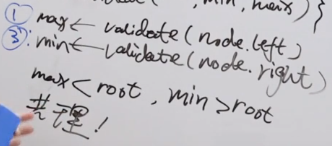 , min, max) }
① max ← validate(node.left)
③: min ← validate(node.right)
max < root, min > root
# 理!